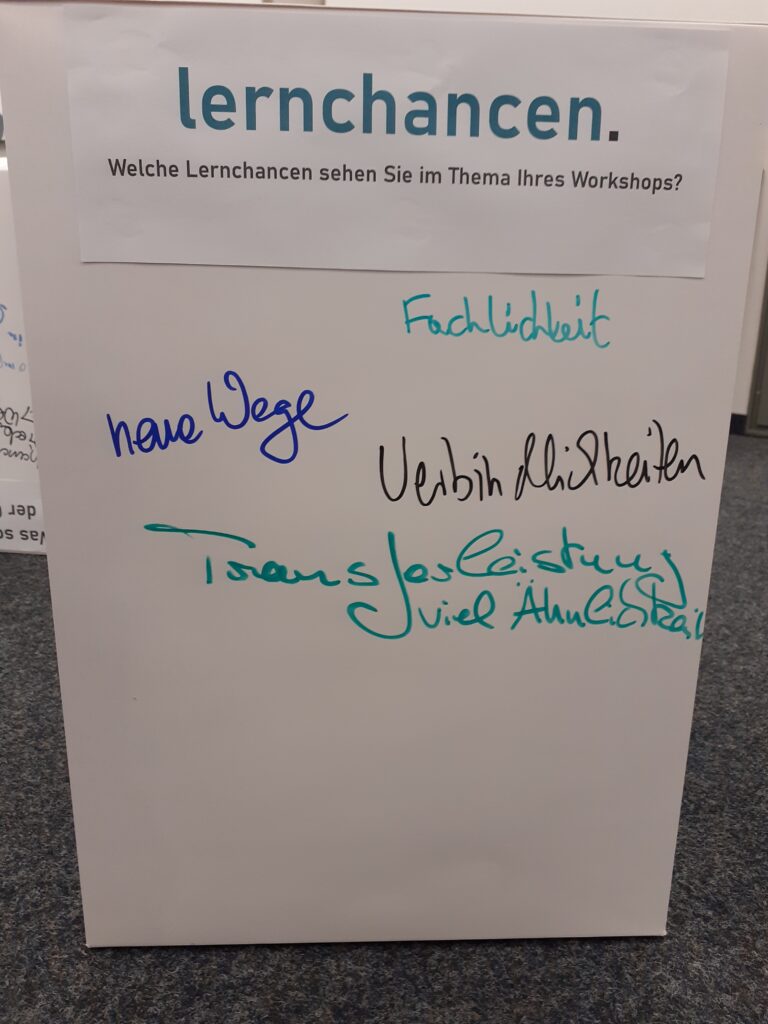 lernchancen.
Welche Lernchancen sehen Sie im Thema Ihres Workshops?
Fachlichkeit
neue Wege
Verbindlichkeiten
Transferleistung
viel Ähnlichkeit
der
Was